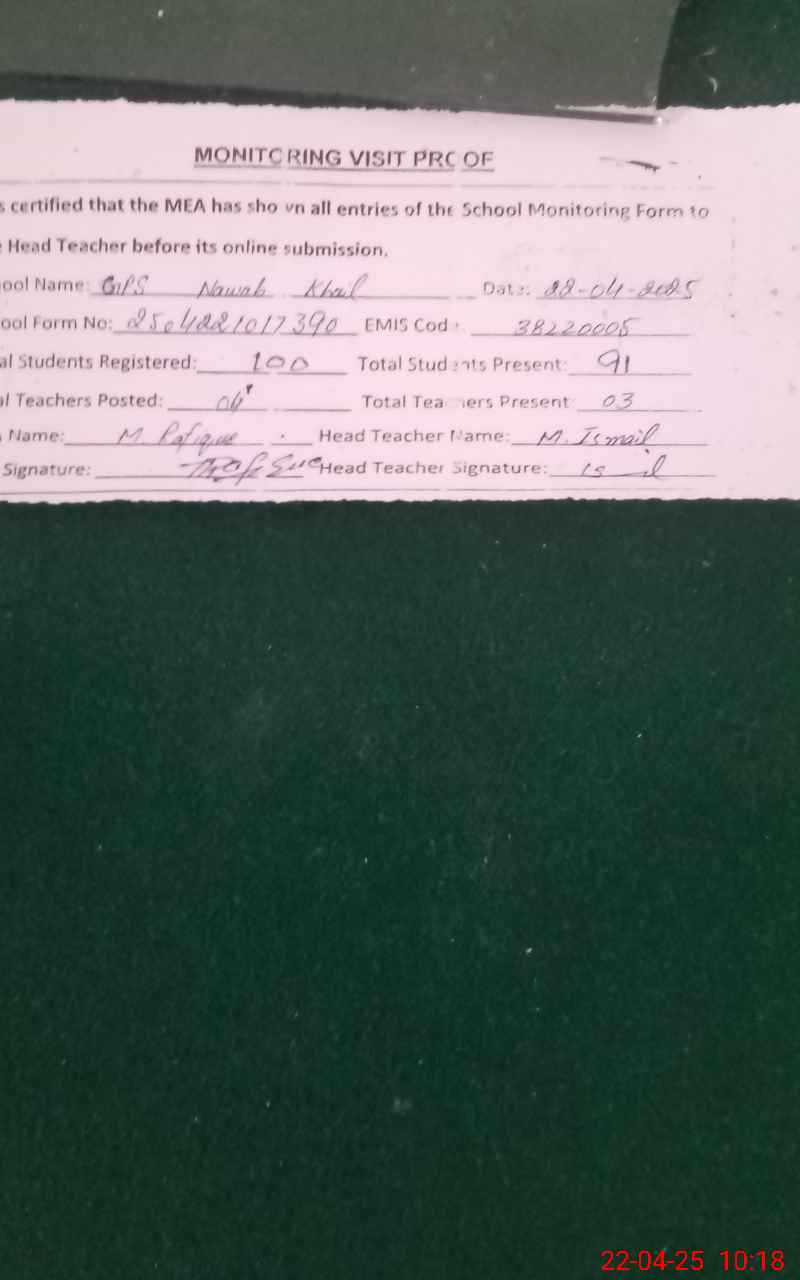 MONITORING VISIT PROOF
s certified that the MEA has shown all entries of the School Monitoring Form to
e Head Teacher before its online submission.
ool Name: GPS Nawab Khail Date: 22-04-2025
ool Form No: 2504221017390 EMIS Code: 38220005
al Students Registered: 100 Total Students Present: 91
al Teachers Posted: 04 Total Teachers Present: 03
Name: M. Rafique Head Teacher Name: M. Ismail
Signature: Head Teacher Signature:
22-04-25 10:18